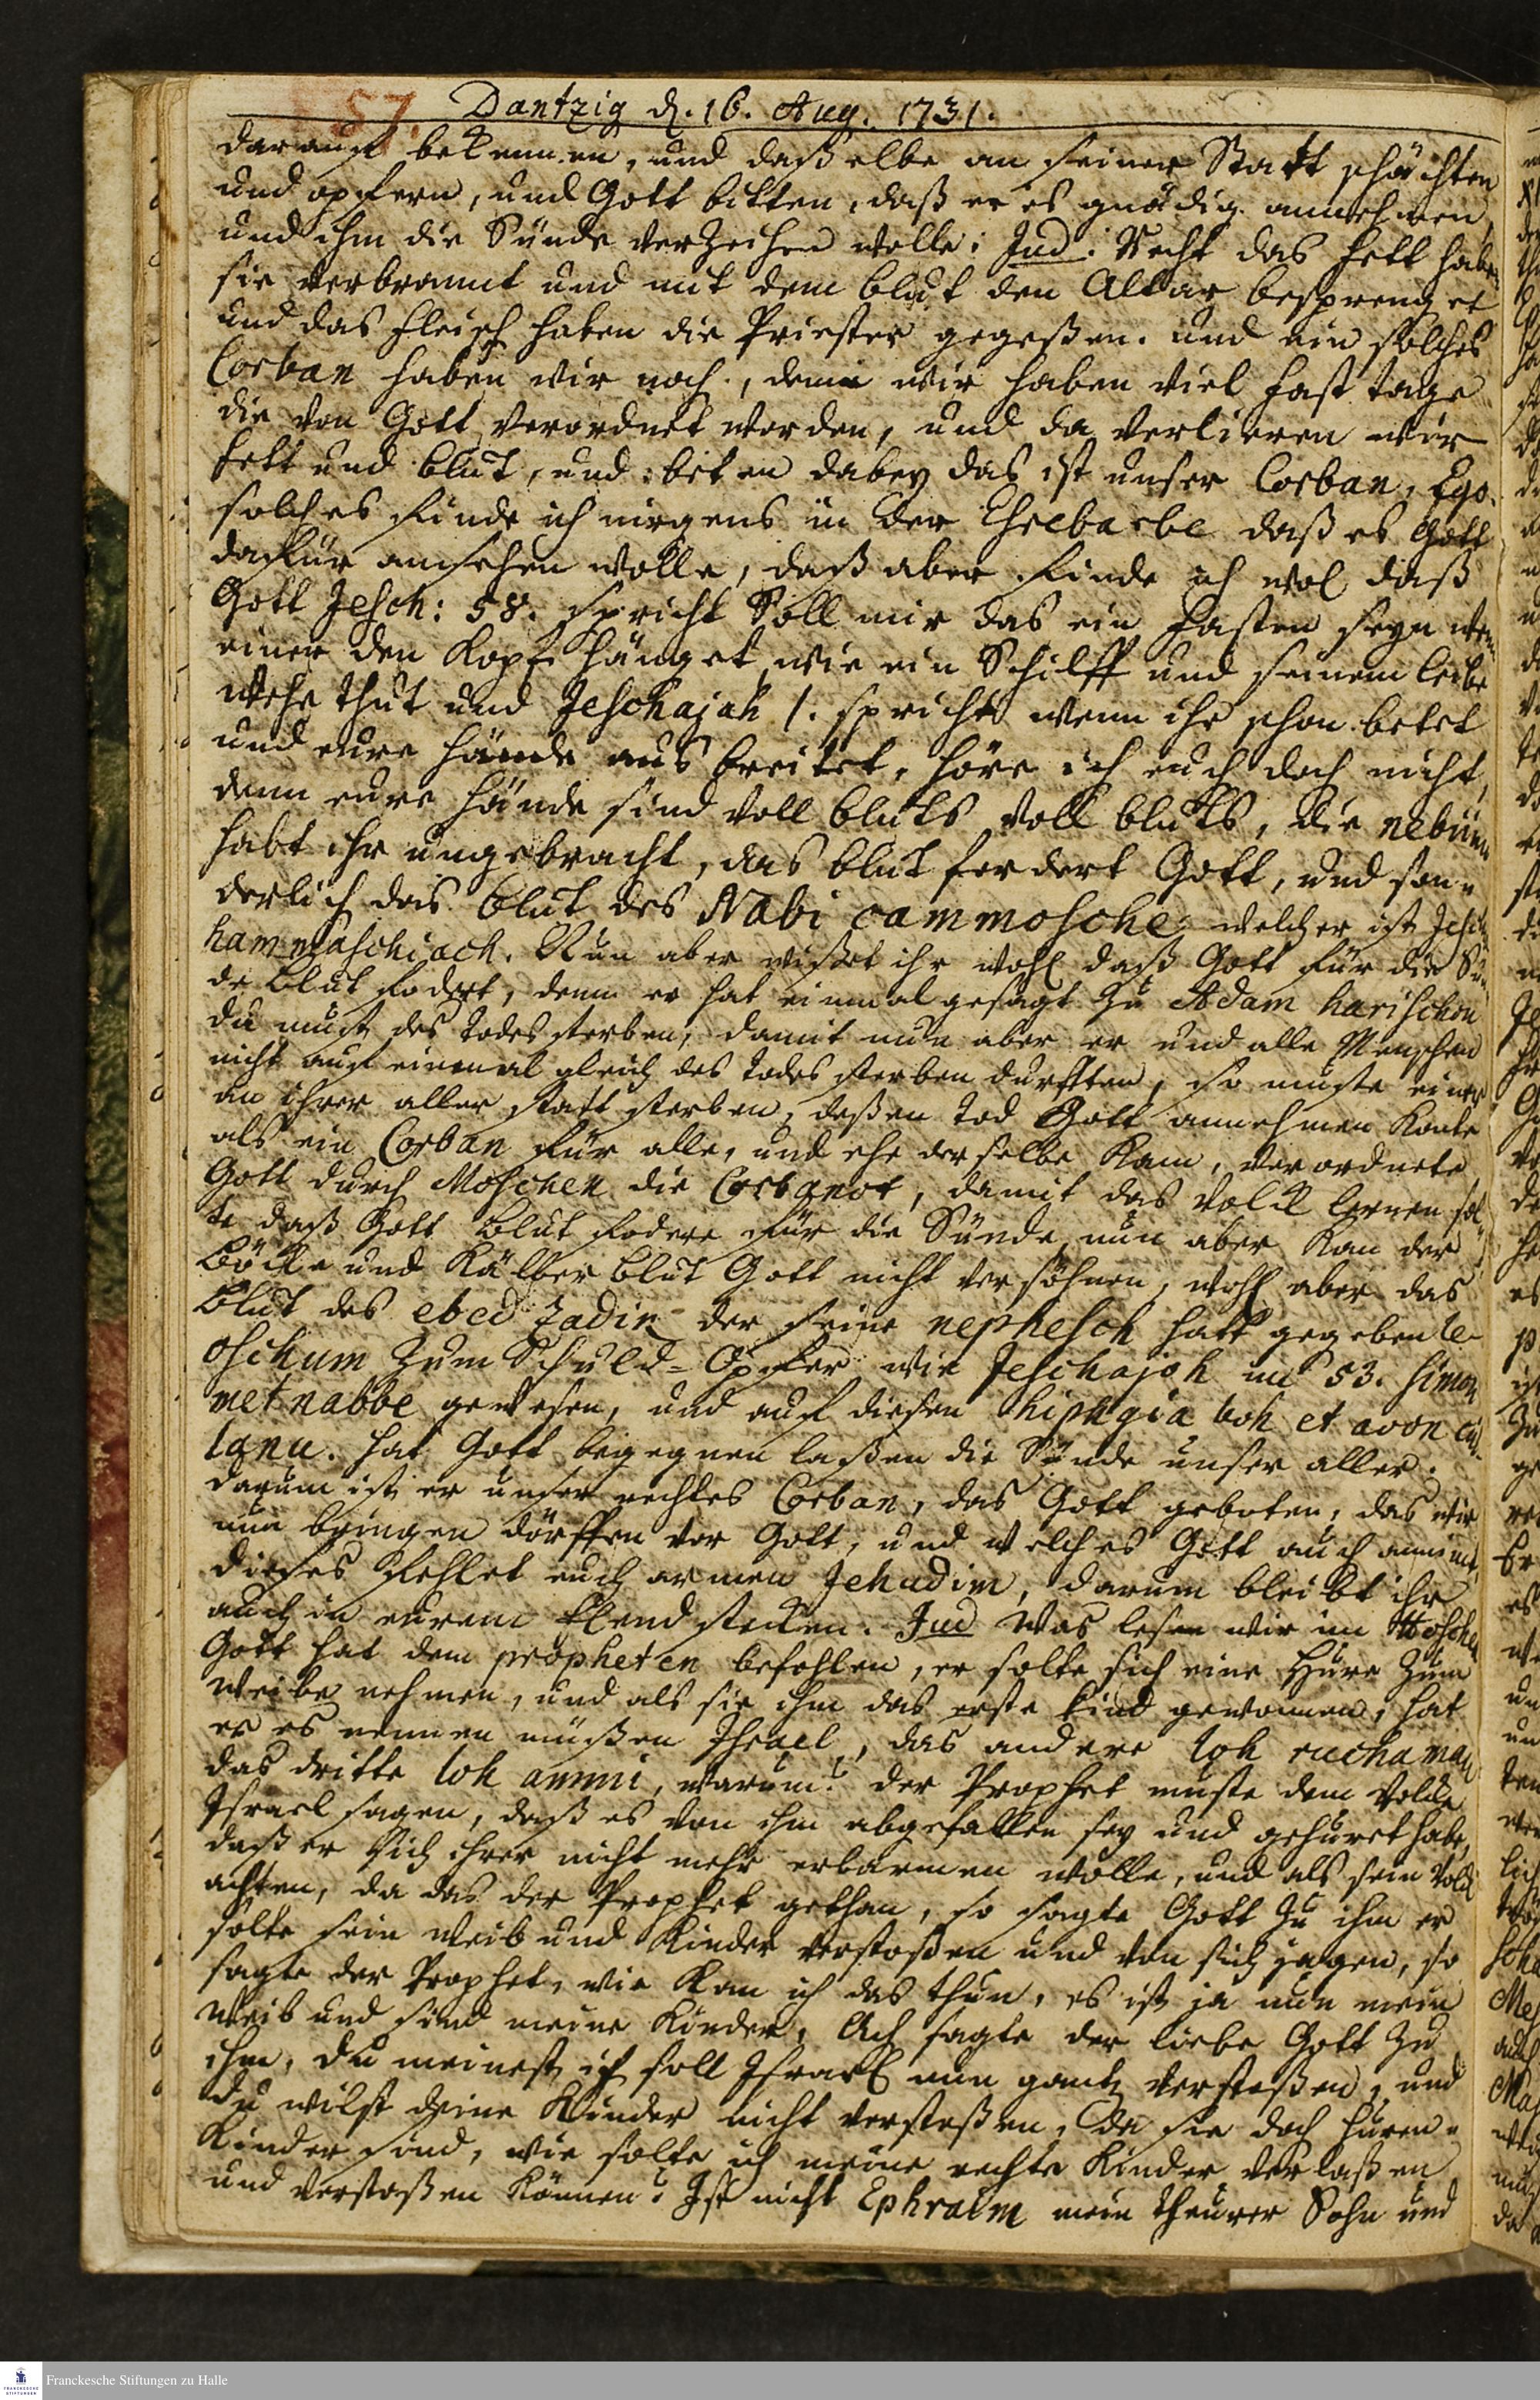 57. Dantzig d. 16. Aug. 1731.
darauf bekennen, und daßelbe an seiner Statt schächten
und opfern, und Gott bitten, daß er es gnädig annehmen,
und ihm die Sünde verzeihen wolle: Jud: Recht das fett haben
sie verbrannt und mit dem blut den Altar besprenget
und das fleisch haben die Priester gegeßen. und ein solches
Corban haben wir noch, denn wir haben viel fast tage
die von Gott verordnet worden, und da verlieren wir
fett und blut, und beten dabey das ist unser Corban, Ego.
solches finde ich nirgens in der Esrebarbe daß es Gott
dafür ansehen wolle, daß aber finde ich wol daß
Gott Jesch: 58. spricht Soll mir das ein fasten seyn wenn
einer den Kopf hänget wie ein Schilff und seinem leibe
wehe thut und Jeschajah 1. spricht wenn ihr schon betet
und eure hände aus breitet, höre ich euch doch nicht,
denn eure hände sind voll bluts voll bluts, die nebiim
habt ihr umgebracht, das blut fordert Gott, und son-
derlich das blut des Nabi cammosche welcher ist Jeschua
hammaschiach. Nun aber wißet ihr wohl daß Gott für die Sün-
de blut fodert, denn er hat einmal gesagt zu Adam harischon
du must des todes sterben, damit nun aber er und alle Menschen
nicht auf einmal gleich des todes sterben durfften, so muste einer
an ihrer aller statt sterben, deßen tod Gott annehmen konte
als ein Corban für alle, und ehe derselbe kam, verordnete
Gott durch Moschen die Corbanot, damit das volck lernen sol-
te daß Gott blut fodere für die Sünde, nun aber kan der
Böcke und Kälber blut Gott nicht versöhnen, wohl aber das
Blut des ebed zadik der seine nephesch hatt gegeben le-
oschum zum Schuld-Opfer wie Jeschajah im 53. simon
metnabbe gewesen, und auf diesen hiphgia boh et avon cul-
lanu. hat Gott begegnen laßen die Sünde unser aller.
darum ist er unser rechtes Corban, das Gott geboten, das wir
nun bringen dörffen vor Gott, und welches Gott auch annimt,
dieses fehlet euch armen Jehudim, darum bleibt ihr
auch in eurem Elend stecken. Jud Was lesen wir im Hoschea
Gott hat dem propheten befohlen, er solte sich eine Hure zum
weibe nehmen, und als sie ihm das erste kind gewonnen, hat
er es nennen müßen Jsrael, das andere loh ruchamah
das dritte loh ammi, warum? der Prophet muste dem Volcke
Jsrael sagen, daß es von ihm abgefallen sey und gehuret habe,
daß er sich ihrer nicht mehr erbarmen wolle, und als sein Volck
achten, da das der Prophet gethan, so sagte Gott zu ihm er
solte sein weib und Kinder verstoßen und von sich jagen, so
sagte der Prophet, wie kan ich das thun, es ist ja nun mein
Weib und sind meine Kinder, Ach sagte der liebe Gott zu
ihm, du meinest ich soll Jsrael nun gantz verstoßen, und
du wilst deine Kinder nicht verstoßen, da sie doch huren-
Kinder sind, wie solte ich meine rechte Kinder verlaßen
und verstoßen können? Jst nicht Ephraim mein theurer Sohn und
Franckesche Stiftungen zu Halle